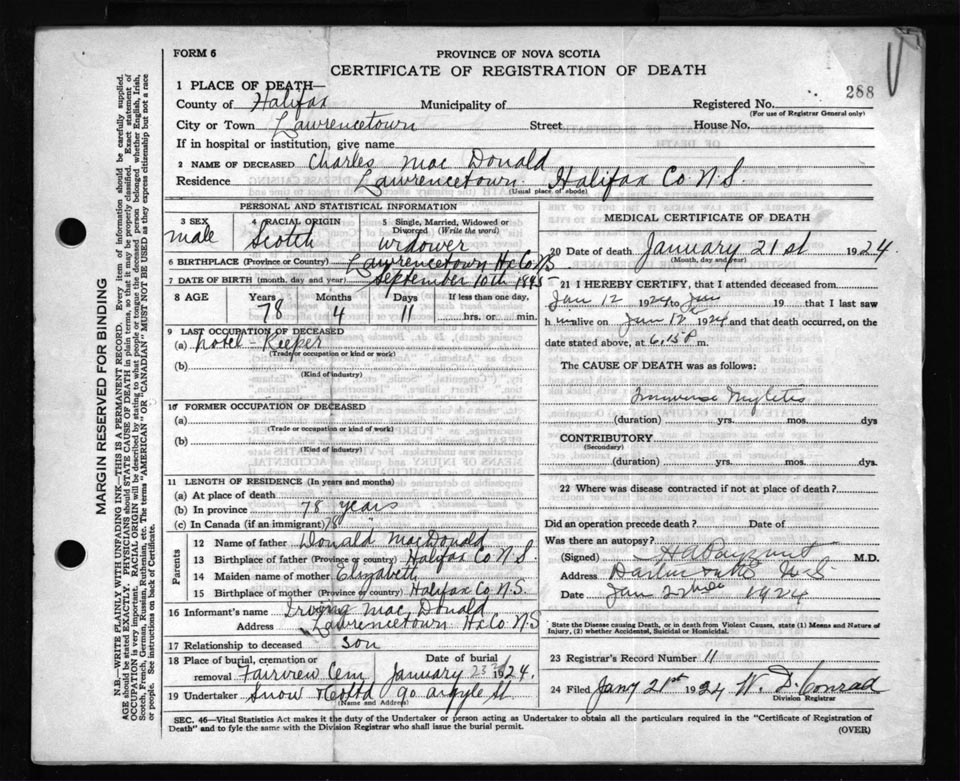 FORM 6
PROVINCE OF NOVA SCOTIA
CERTIFICATE OF REGISTRATION OF DEATH
288
1 PLACE OF DEATH—
County of Halifax Municipality of Registered No.
(For use of Registrar General only)
City or Town Lawrencetown Street House No.
If in hospital or institution, give name
2 NAME OF DECEASED Charles Mac Donald
Residence Lawrencetown Halifax Co N.S.
(Usual place of abode)
PERSONAL AND STATISTICAL INFORMATION
3 SEX 4 RACIAL ORIGIN 5 Single, Married, Widowed or Divorced (Write the word)
male Scotch widower
6 BIRTHPLACE (Province or Country) Lawrencetown Hx Co NS
7 DATE OF BIRTH (month, day and year) September 10th 1845
8 AGE Years Months Days If less than one day,
78 4 11 hrs. or min.
9 LAST OCCUPATION OF DECEASED
(a) hotel-Keeper
(Trade or occupation or kind or work)
(b)
(Kind of industry)
10 FORMER OCCUPATION OF DECEASED
(a)
(Trade or occupation or kind of work)
(b)
(Kind of industry)
11 LENGTH OF RESIDENCE (In years and months)
(a) At place of death
(b) In province 78 years
(c) In Canada (if an immigrant) 78 "
Parents
12 Name of father Donald MacDonald
13 Birthplace of father (Province or country) Halifax Co N.S.
14 Maiden name of mother Elizabeth
15 Birthplace of mother (Province or country) Halifax Co N.S.
16 Informant's name Irving Mac Donald
Address Lawrencetown Hx Co. N.S
17 Relationship to deceased son
18 Place of burial, cremation or removal Date of burial
Fairview Cem January 23rd 1924.
19 Undertaker Snow & Co Ltd 90 Argyle St
(Name and Address)
MEDICAL CERTIFICATE OF DEATH
20 Date of death January 21st 1924.
(Month, day and year)
21 I HEREBY CERTIFY, that I attended deceased from
Jan 12 1924 to Jan 19 that I last saw
h im alive on Jan 12th 1924 and that death occurred, on the
date stated above, at 6.15 P m.
The CAUSE OF DEATH was as follows:
(duration) yrs. mos. dys
CONTRIBUTORY
(Secondary)
(duration) yrs. mos. dys.
22 Where was disease contracted if not at place of death?
Did an operation precede death? Date of
Was there an autopsy?
(Signed) M.D.
Address Dartmouth N.S.
Date Jan 1924
State the Disease causing Death, or in death from Violent Causes, state (1) Means and Nature of Injury, (2) whether Accidental, Suicidal or Homicidal.
23 Registrar's Record Number 11
24 Filed Jany 21st 1924 W. D. Conrad
Division Registrar
SEC. 46—Vital Statistics Act makes it the duty of the Undertaker or person acting as Undertaker to obtain all the particulars required in the "Certificate of Registration of
Death" and to fyle the same with the Division Registrar who shall issue the burial permit.
(OVER)
MARGIN RESERVED FOR BINDING
N.B.—WRITE PLAINLY WITH UNFADING INK—THIS IS A PERMANENT RECORD. Every item of information should be carefully supplied.
AGE should be stated EXACTLY. PHYSICIANS should STATE CAUSE OF DEATH in plain terms, so that it may be properly classified. Exact statement of
OCCUPATION is very important. RACIAL ORIGIN will be described by stating to what people or tongue the deceased person belonged whether English, Irish,
Scotch, French, German, Russian, Ruthenian, etc. The terms "AMERICAN" OR "CANADIAN" MUST NOT BE USED as they express citizenship but not a race
or people. See instructions on back of Certificate.